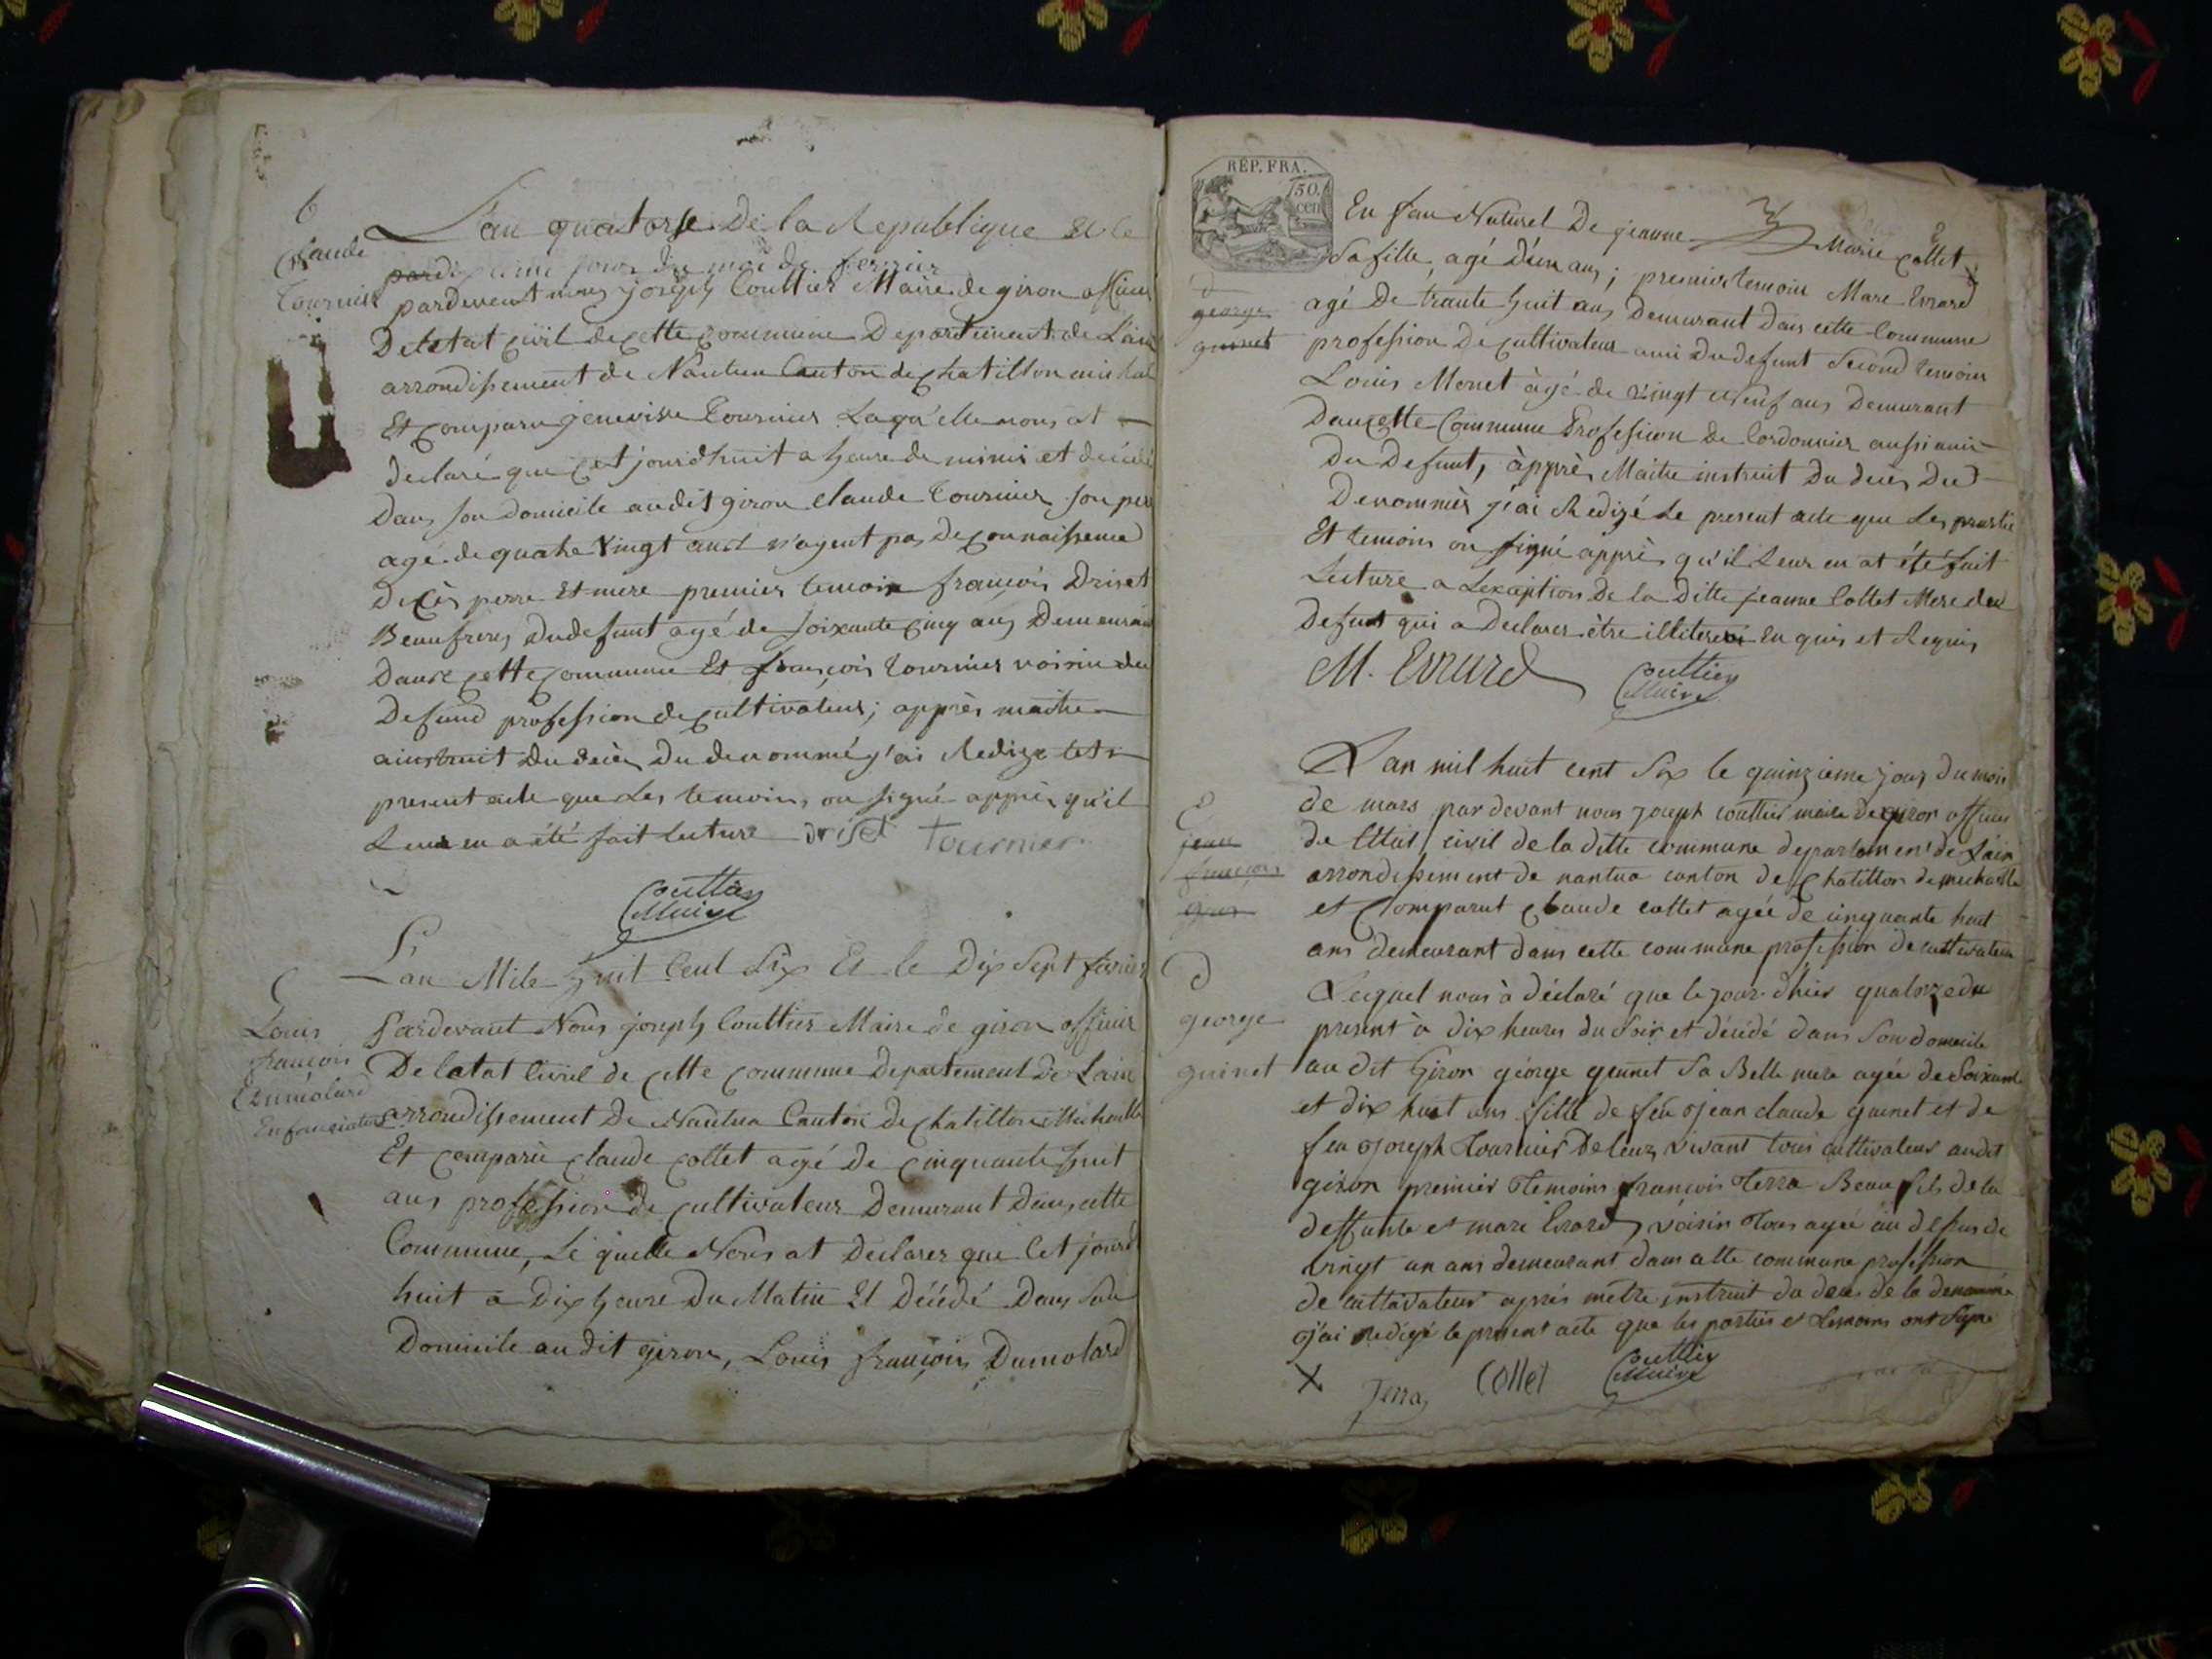 6
Claude
Tournier
L'an quatorse De la Republique Et le
jour du moi de fevrier
pardevent nous joseph Couttier Maire de giron officier
De letat civil de cette commune Departement de L'ain
arrondissement de Nantua Canton de chatillon michal
Et comparu genevieve Tournier Laqu'elle nous at
declaré que cet jourd'huit a heure de minui et décédé
Dans son Domicile audit giron claude Tournier son pere
agé de quatre Vingt ans n'ayent pas De connaissence
De cès perre Et mere premier temoin françois Driset
Beaufrere dudefunt agé de soixante cinq ans Demeurant
Dans cette commune Et françois Tournier voisin du
Defund profession de cultivateur; apprès maitre
ainstruit du decès Du denommé j'ai Redige cet
present acte que les temoins on signé apprès qu'il
Leur en a été fait lecture Driset Tournier
Couttier
Maire
6
Louis
françois
Dumolard
L'an Mile huit Cent Six Et le Dix Sept fevrier
Pardevant Nous joseph Couttier Maire de giron officier
De letat Civil de cette commune Departement De Lain
arrondissement De Nantua Canton de chatillon Michaille
Et comparu claude collet agé de cinquante huit
ans profession de cultivateur Demurant Dans cette
Commune, Le quelle Nous at Declarer que Cet jourd
huit a Dix heure Du Matin Et Décédé Dans Son
Domicile au dit giron, Louis françois Dumolard
RÉP. FRA.
50.
cen
En fan Naturel De jeanne Marie collet
Sa fille, agé D'un ans; premier temoin Marc Evrard
agé De trante huit ans Demurant dans cette Commune
profession De cultivateur ami Du defunt Second temoin
Louis Monet àgé de Vingt Neuf ans Demurant
Dans cette Commune Profession de Cordonnier aussi ami
Du Defunt, àpprès Maitre instruit Du decès Du
Denommès j'ai Redizé Le present acte que Les partie
Et temoins on signé apprès qu'il Leur en at été fait
Lecture a Lexception De la Ditte jeanne Collet Mere du
Defunt qui a Declarer être illiterei En quis et Requis
M. Evrard
Couttier
Maire
D
george
guinet
L'an mil huit cent Six le quinzieme jour du mois
de mars par devant nous joseph couttier maire de giron officier
de l'Etat civil de la ditte commune departement de l'ain
arrondissement de nantua canton de chatillon de michaille
et Comparut claude collet agée de cinquante huit
ans demeurant dans cette commune profession de cultivateur
Lequel nous à déclaré que le jour d'hier quatorze du
present à dix heures du Soir et décédé dans Son domicile
au dit Giron géorge guinet Sa Belle mere agée de Soixante
et dix huit ans fille de feu jean claude guinet et de
feu joseph Tournier De leur vivant tous cultivateur audit
giron premier temoins françois Terra Beau fils de la
deffunte et marc Evrard voisin tous agée au dessus de
vingt un ans demeurant dans cette commune profession
de cultivateur aprés métre instruit du deces de la denommé
j'ai redigé le present acte que les parties et temoins ont Signé
jean
françois
D
george
guinet
X Terra Collet Couttier
Maire